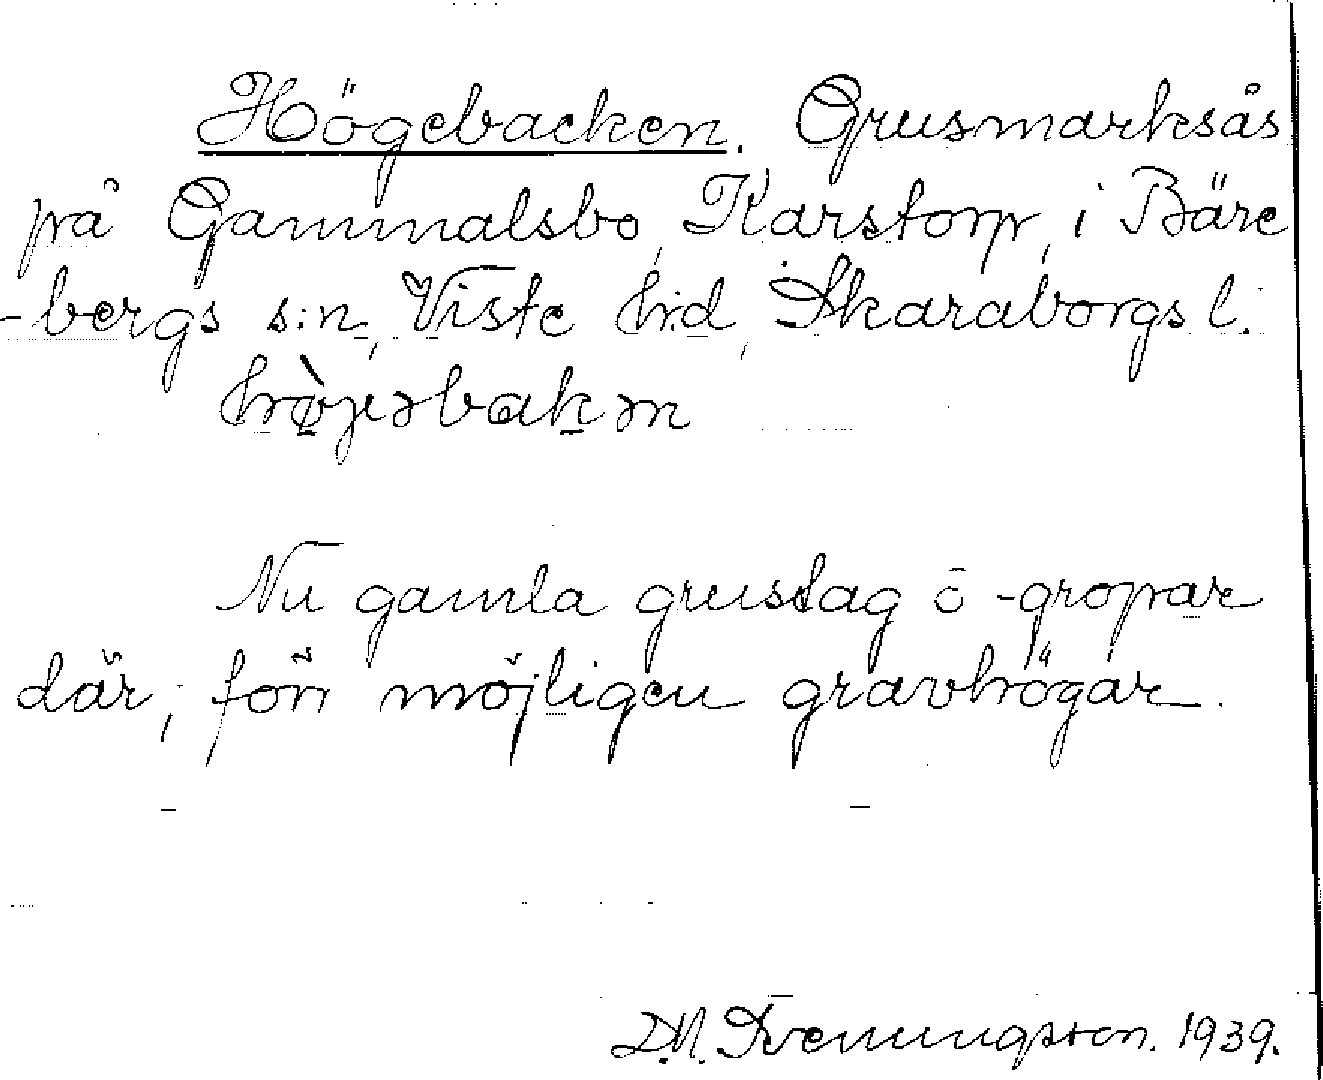 Högebacken. Grusmarksås
på Gammalsbo, Karstorp, i Bäre
-bergs s:n, Viste hd, Skaraborgs l.
Nu gamla grustag o -gropar
där; förr möjligen gravhögar.
D.N. Svenningsson. 1939.